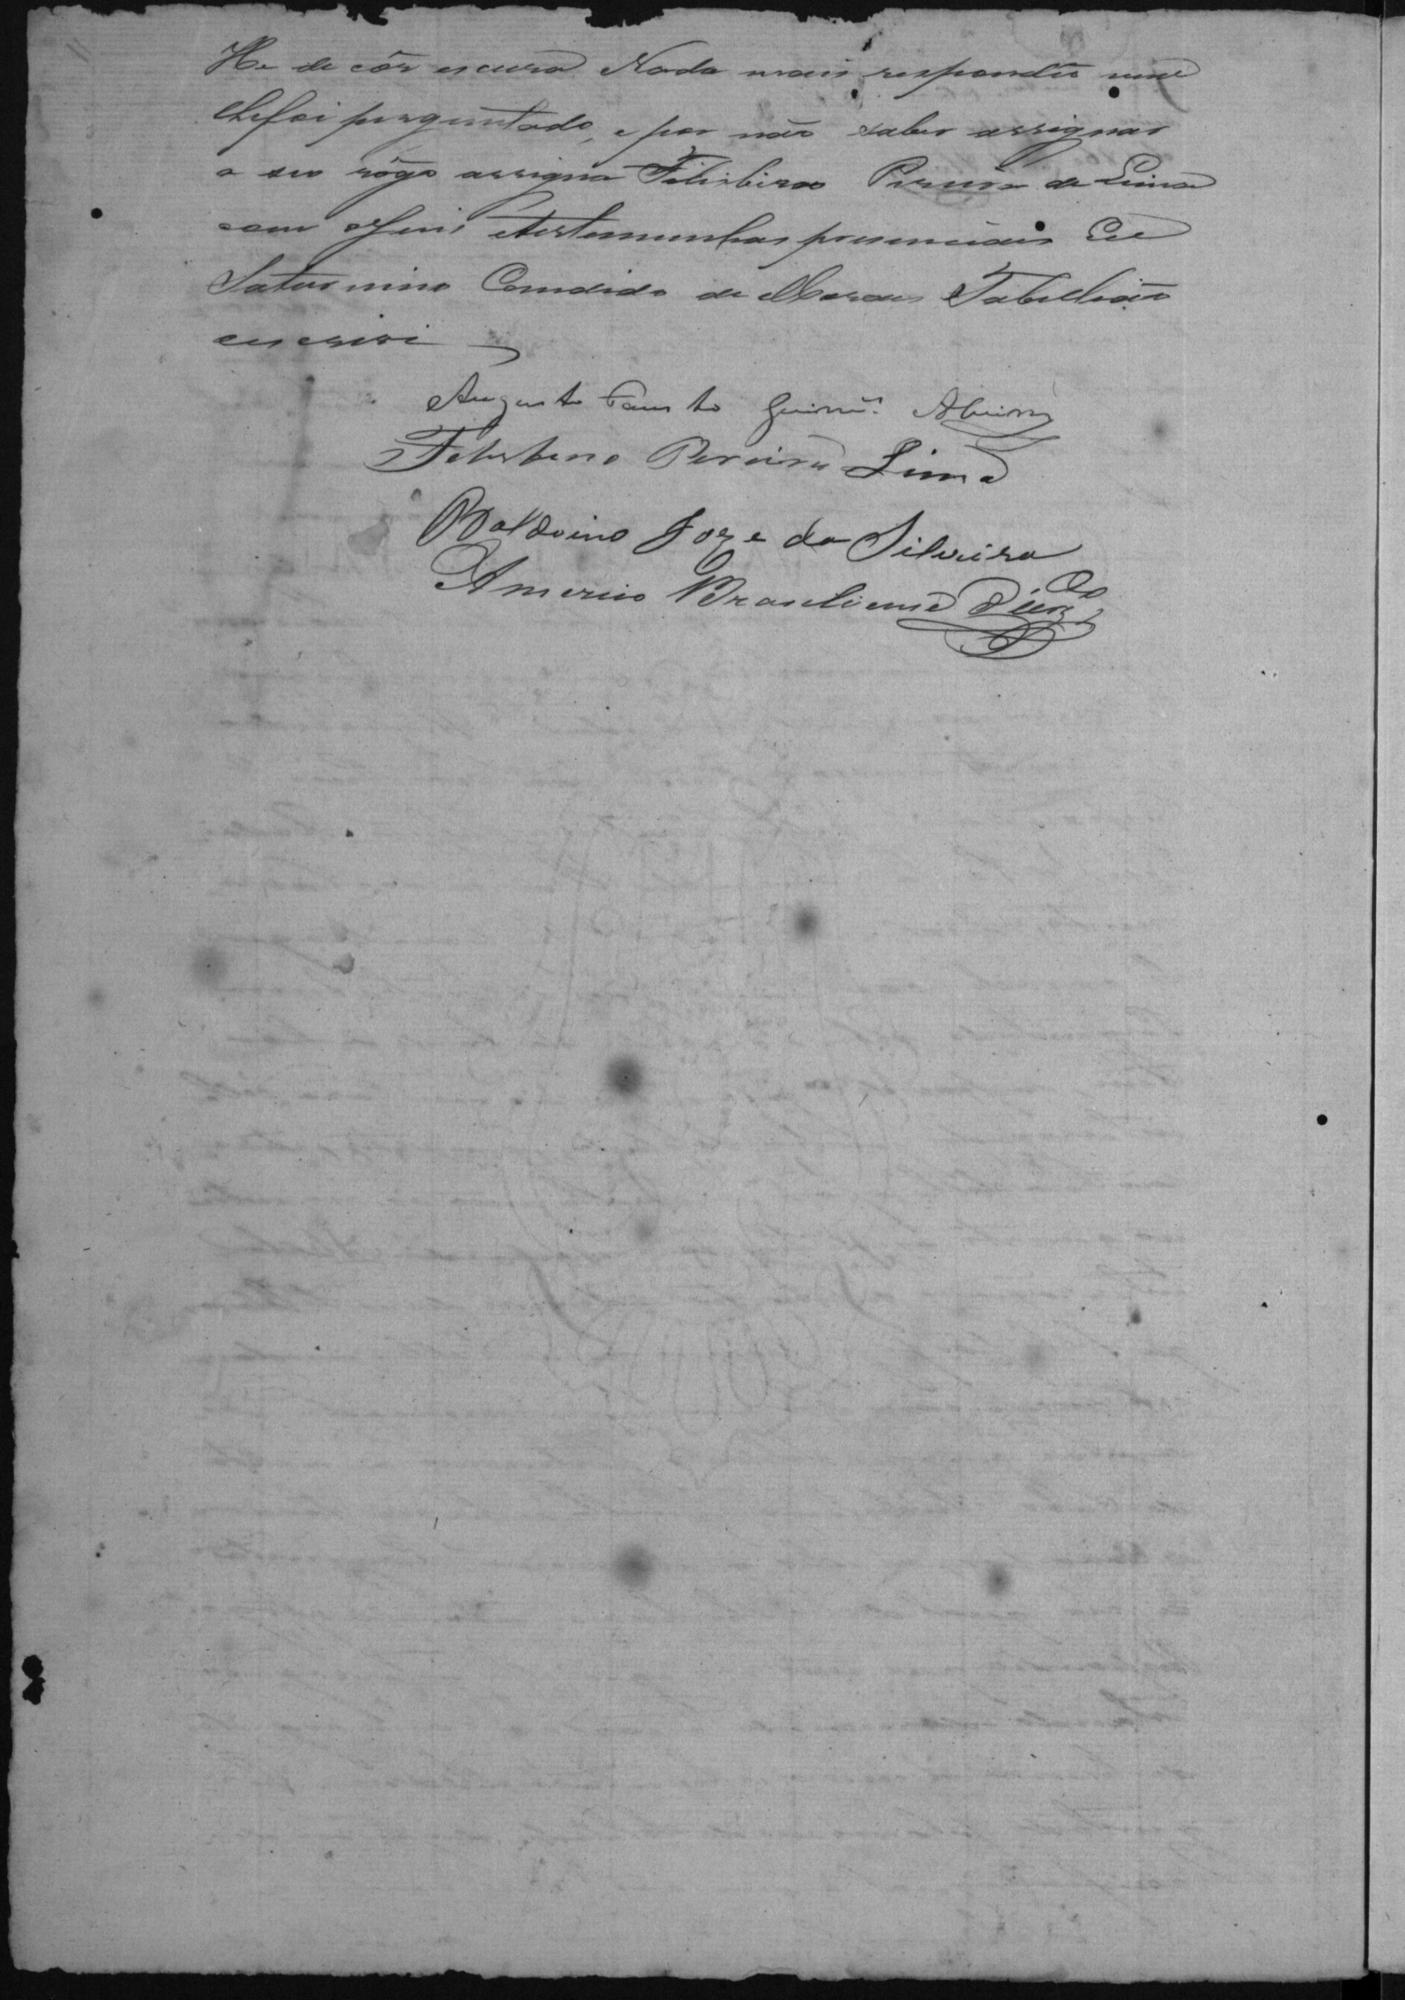 He de côr escura Nada mais respondeu nem
lhe foi perguntado, e por não saber assignar
a seo rôgo assigna Felisbino Pereira de Lima
com o Juiz e testemunhas presenciais Eu
Saturnino Candido de Moraes Tabellião
escrevi
Augusto Fausto Guim.es
Felisbino Pereira Lima
Baldoino Joze da Silveira
Americo Brasiliense